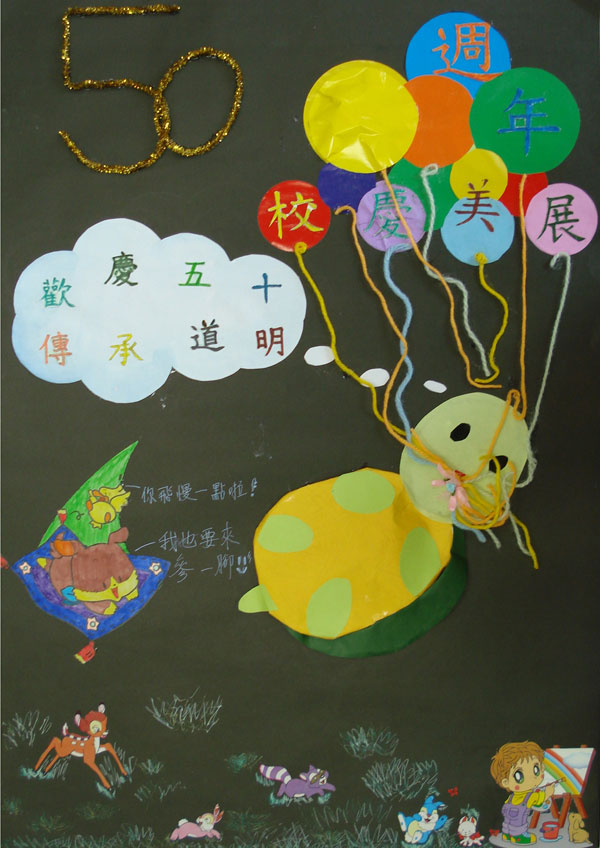 50
週
年
校慶美展
歡慶五十
傳承道明
你飛慢一點啦!
我也要來
參一腳!!!